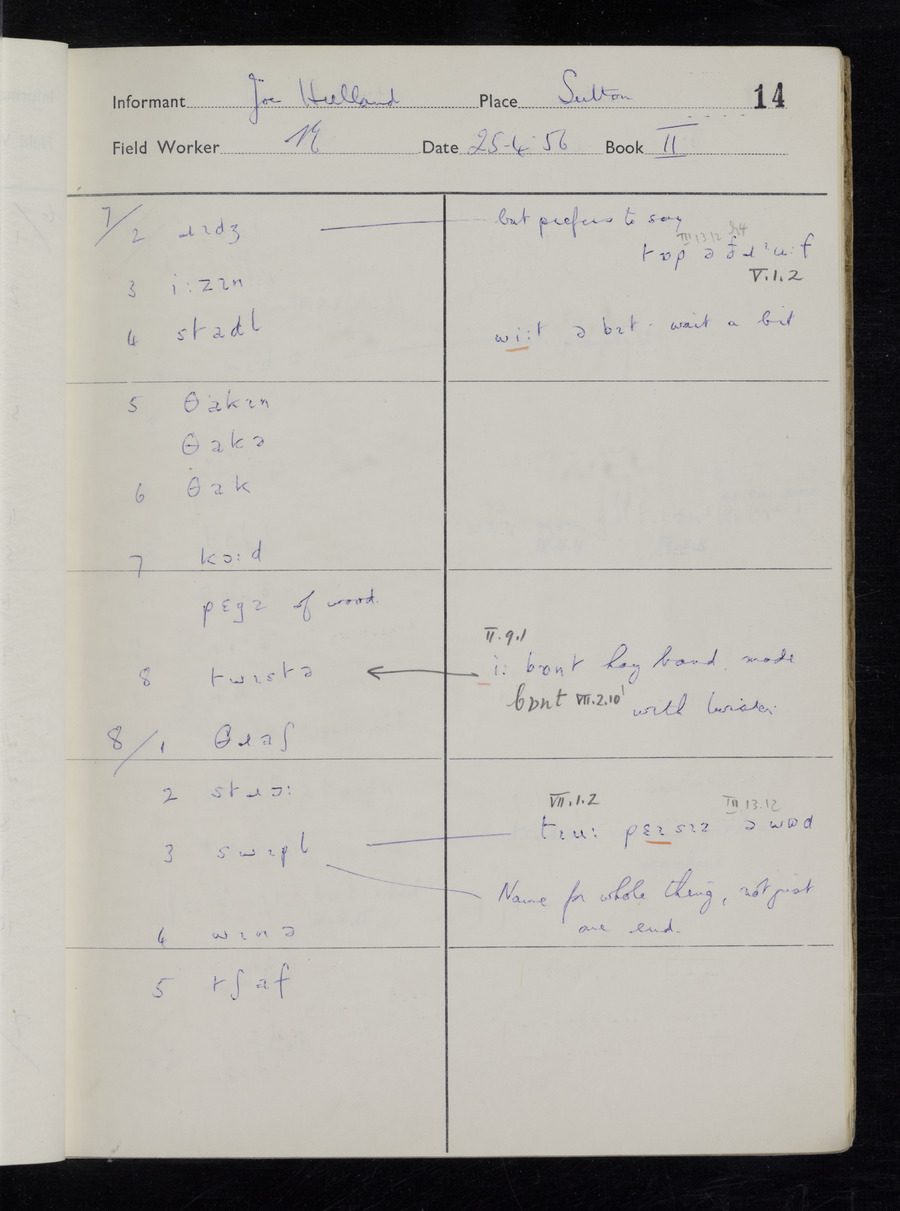 Informant Joe Hulland Place Sutton 14
Field Worker Date 25-4-56 Book II
7/2 ɹɪdʒ but prefers to say
III 13.12
tɒp ə ð ɹuːf
V.1.2
3 iːzɪn
4 stadl wiːt ə bɪt - wait a bit
5 θakɪn
θakə
6 θak
7 kɔːd
pɛgz of wood.
II.9.1
8 twɪstə iː bɒnt hay band. made
bɒnt VII.2.10 with twister
8/1 θɹaʃ
2 stɹɔː
VII.1.2 III 13.12
tɪuː pɛɪsɪz ə wɒd
3 swɪpl
Name for whole thing, not just
one end.
4 wɪnə
5 tʃaf